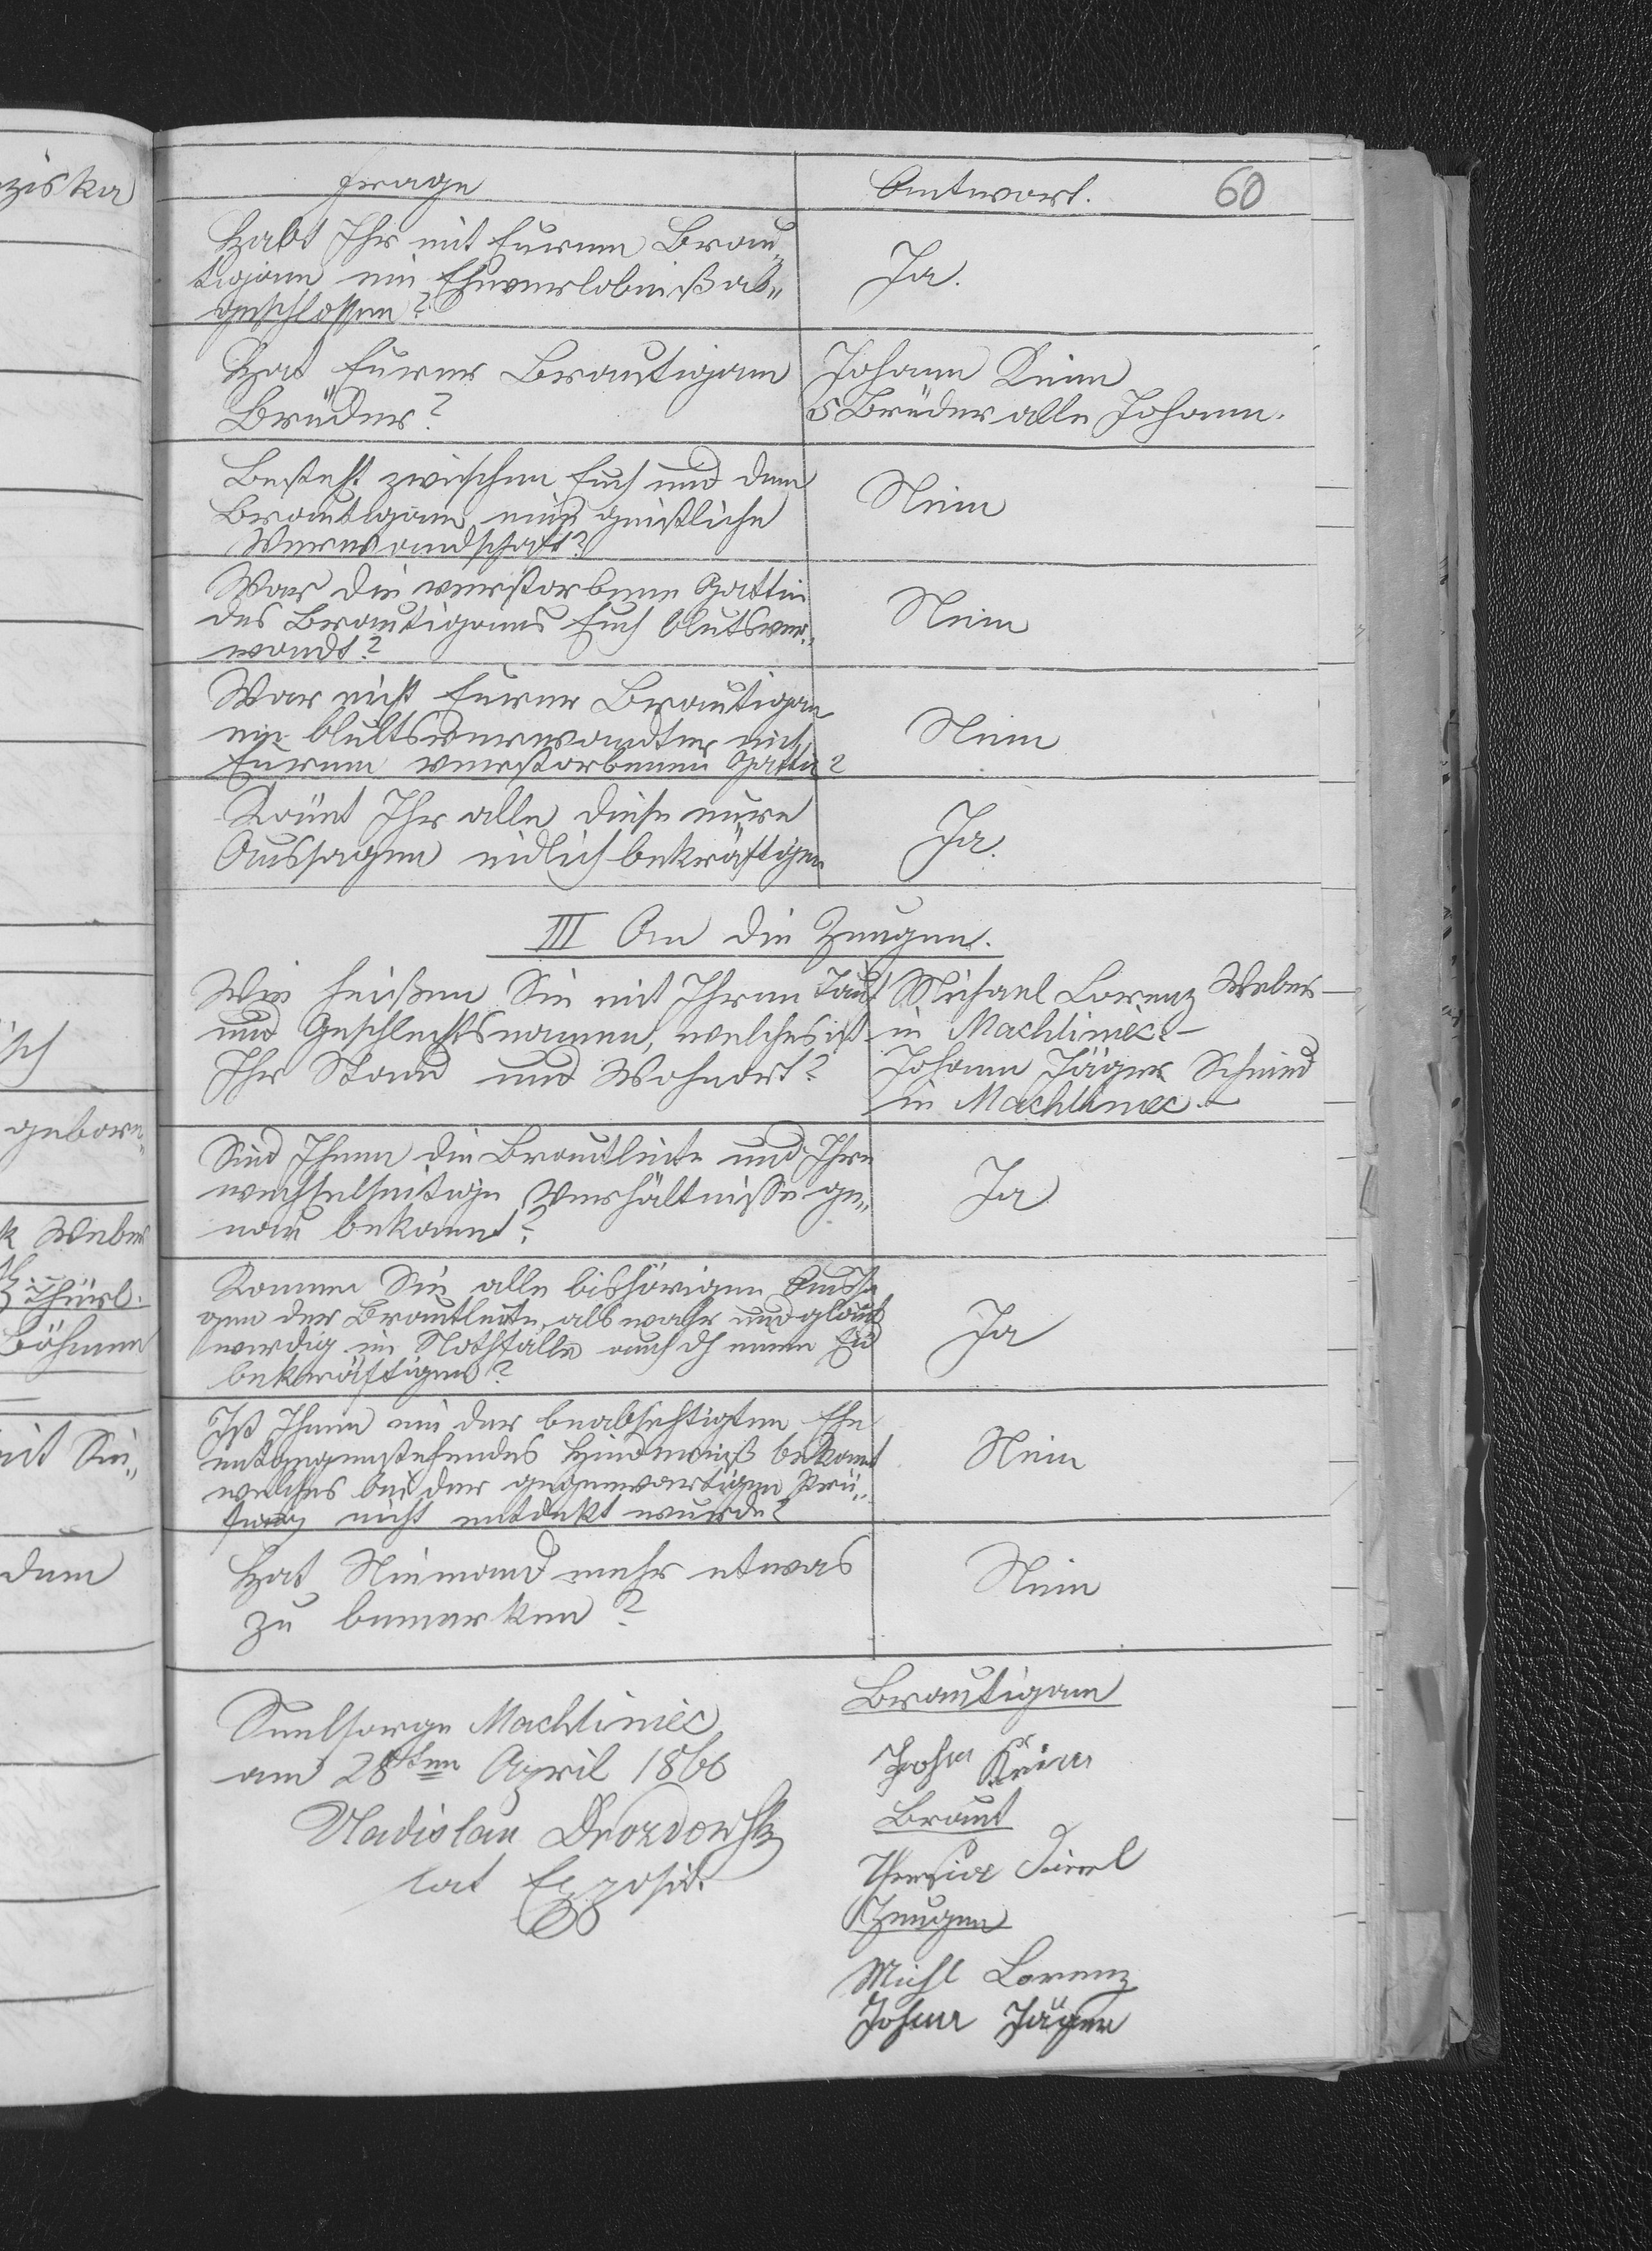 ziska
isch
geborn„
k Weber
Thürl.
Böhmen
mit Sei„
dem
Frage
Antwort.
60
Habt Ihr mit Eurem Brau„
tigam ein Eheverlobniß ab„
geschlossen?
Ja.
Hat Eurer Brautigam
Brüder?
Johann Keim
5 Brüder alle Johann.
Besteht zwischen Euch und dem
Brautigam eine geistliche
Verwandschaft?
Nein
War die verstorbene Gattin
des Brautigams Euch blutsver„
wandt?
Nein
War nicht Eurer Brautigam
ein blultsverwandter mit
Eurem verstorbenen Gattin?
Nein
Könnt Ihr alle diese eure
Aussagen eidlich bekräftigen
Ja.
III An die Zeugen.
Wie heißen Sie mit Ihren Tauf
und Geschlechtsnamen, welches ist
Ihr Stand und Wohnort?
Michael Lorenz Weber
in Machliniec. –
Johann Jäger Schmied
in Machliniec –
Sind Ihnen die Brautleute und Ihre
wechselseitige Verhältnisse ge„
nau bekannt?
Ja
Konnen Sie alle bishörigen Aussa
gen der Brautleute als wahr und glaub
wirdig im Nothfalle auch dh einen Eid
bekräftigen?
Ja
Ist Ihnen ein der beabsichtigten Ehe
entgegenstehendes Hinderniß bekannt
welches bei der gegenwartigen Prü„
fung nicht entdekt wurde?
Nein
Hat Niemand mehr etwas
zu bemerken?
Nein
Seelsorge Machliniec
am 28ten April 1866
Vladislau Drozdowski
lat Exposit.
Brautigam
Johan Keim
Braut
Theresia Türl
Zeugen
Michl Lorenz
Johan Jäger